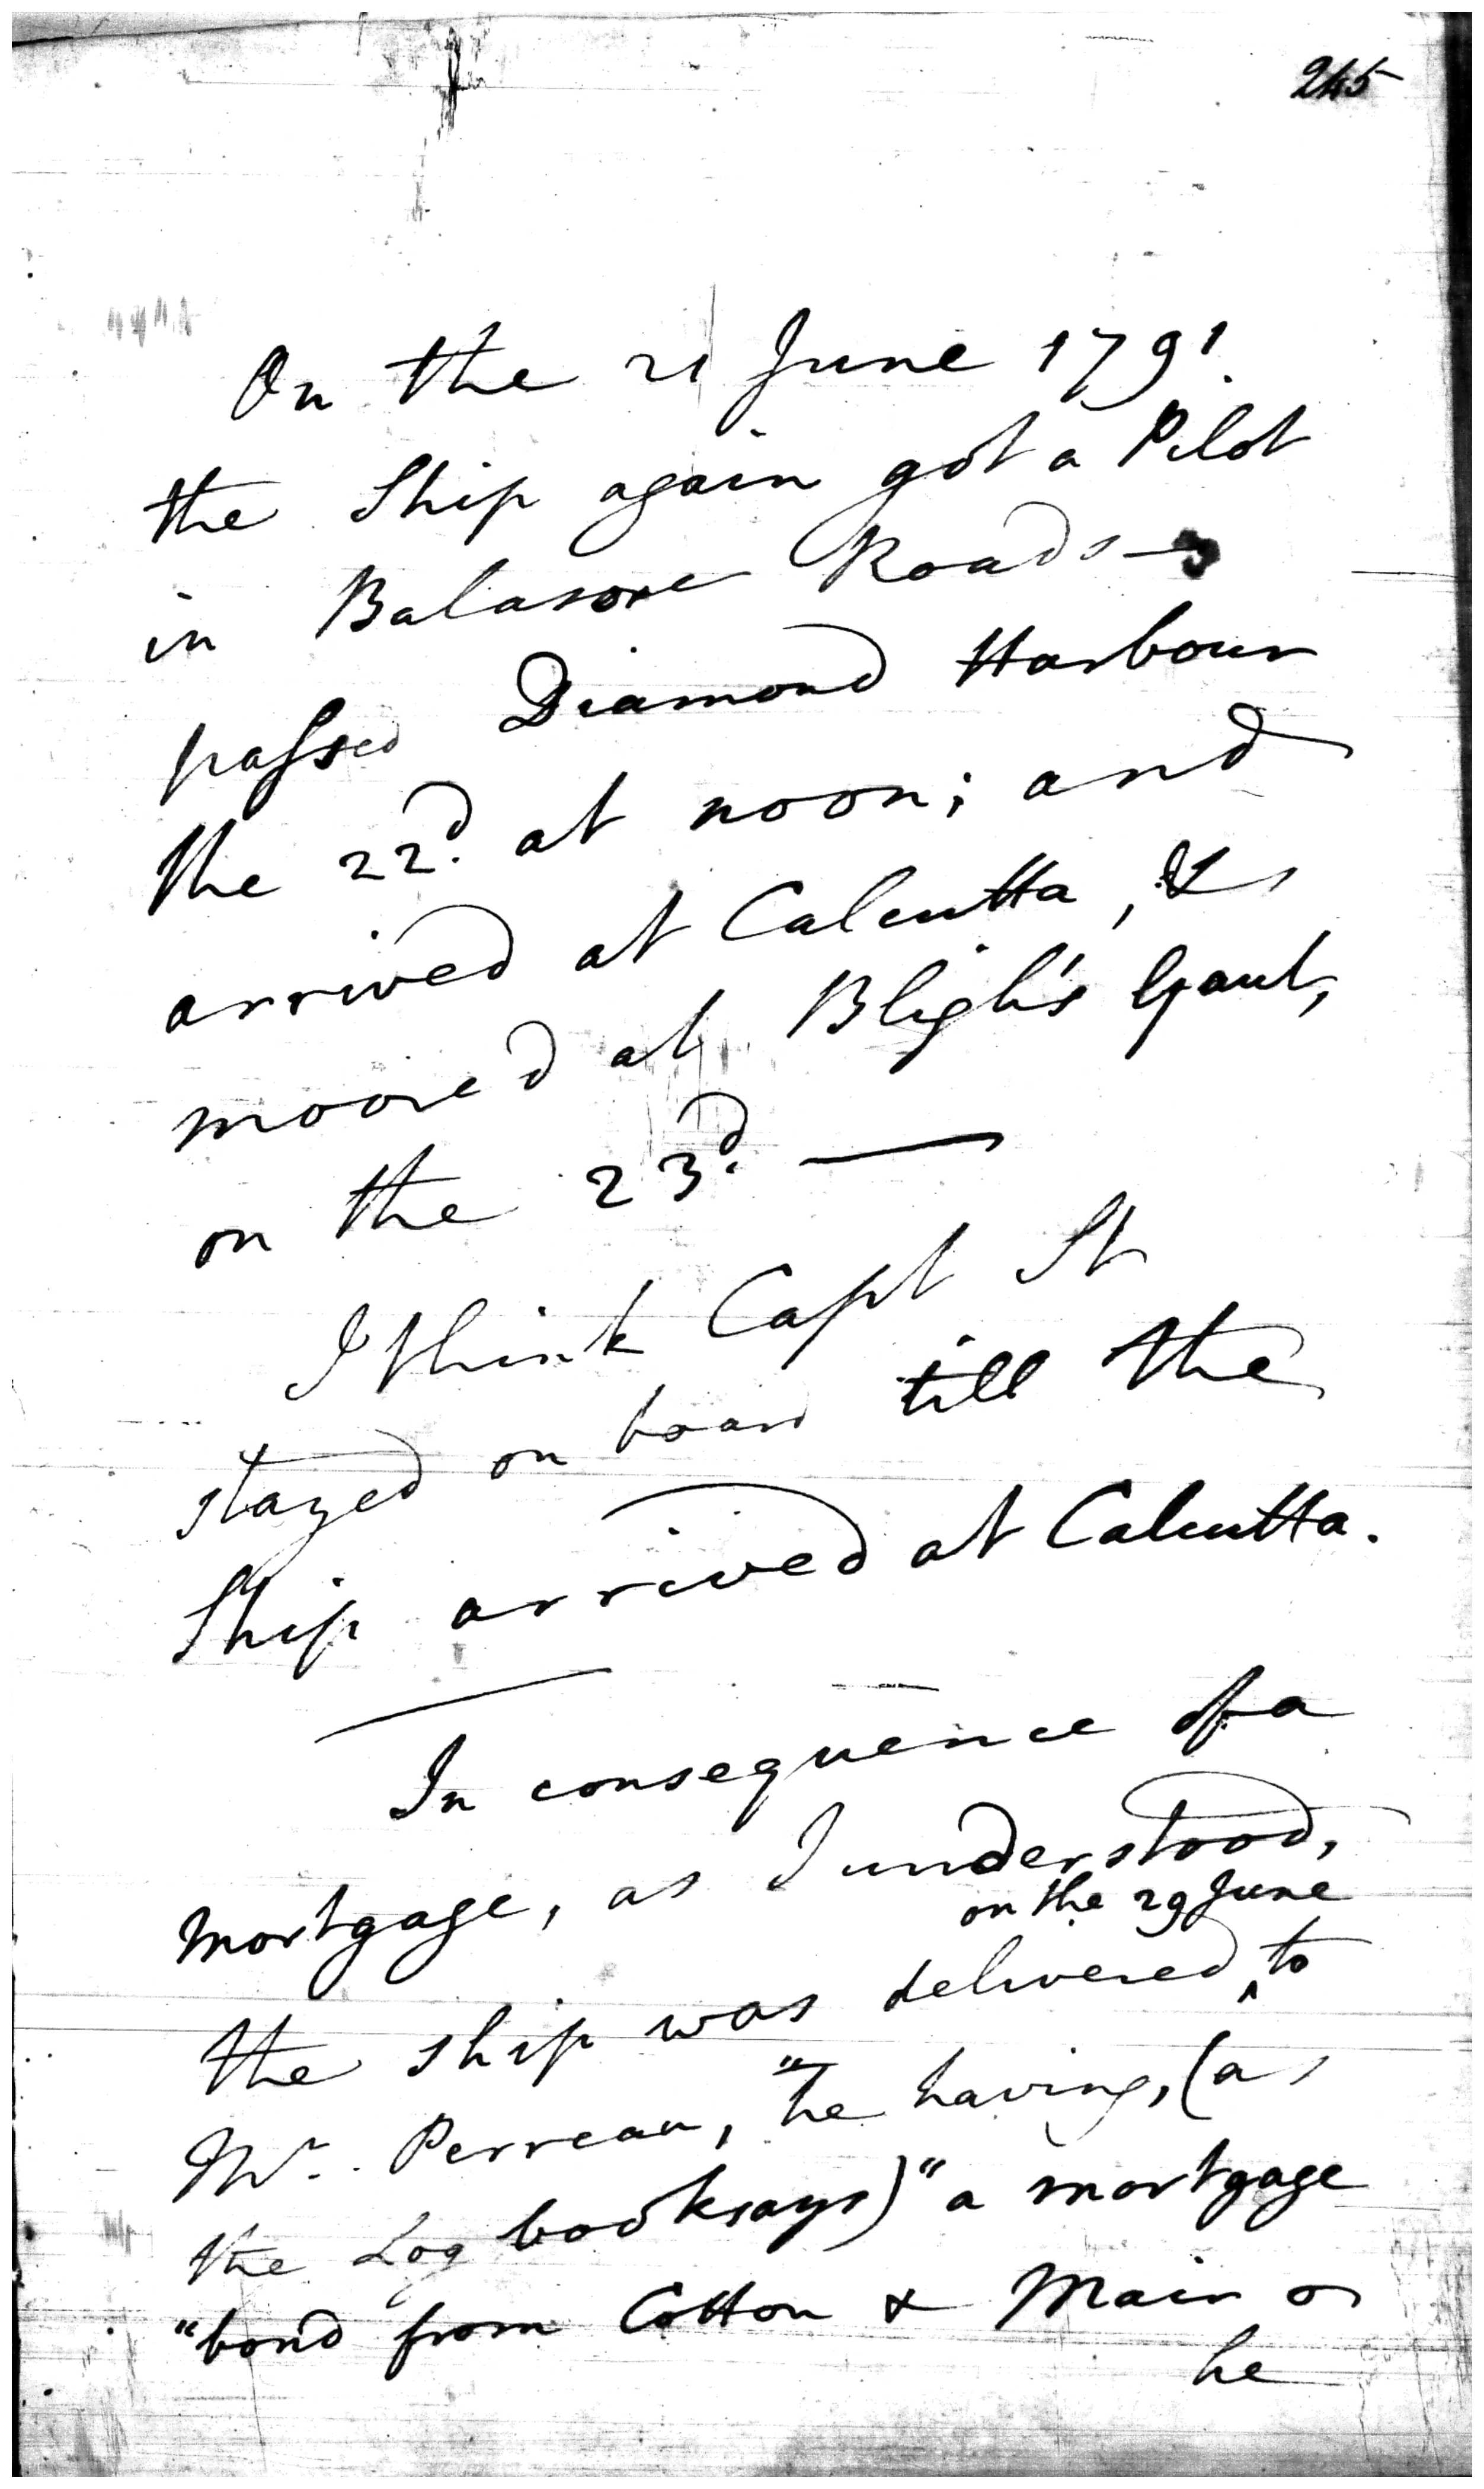 245
On the 21 June 1791.
the Ship again got a Pilot
in Balasore Roads
passed Diamond Harbour
the 22d. at noon; and
arrived at Calcutta, &
moored at Bligh's Gaut,
on the 23d. —
I think Capt St
stayed on board till the
Ship arrived at Calcutta.
In consequence of a
mortgage, as I understood,
on the 29 June
the ship was delivered ^ to
Mr. Perreau, "he having, (as
the Log book says) "a mortgage
"bond from Cotton & Mair on
he